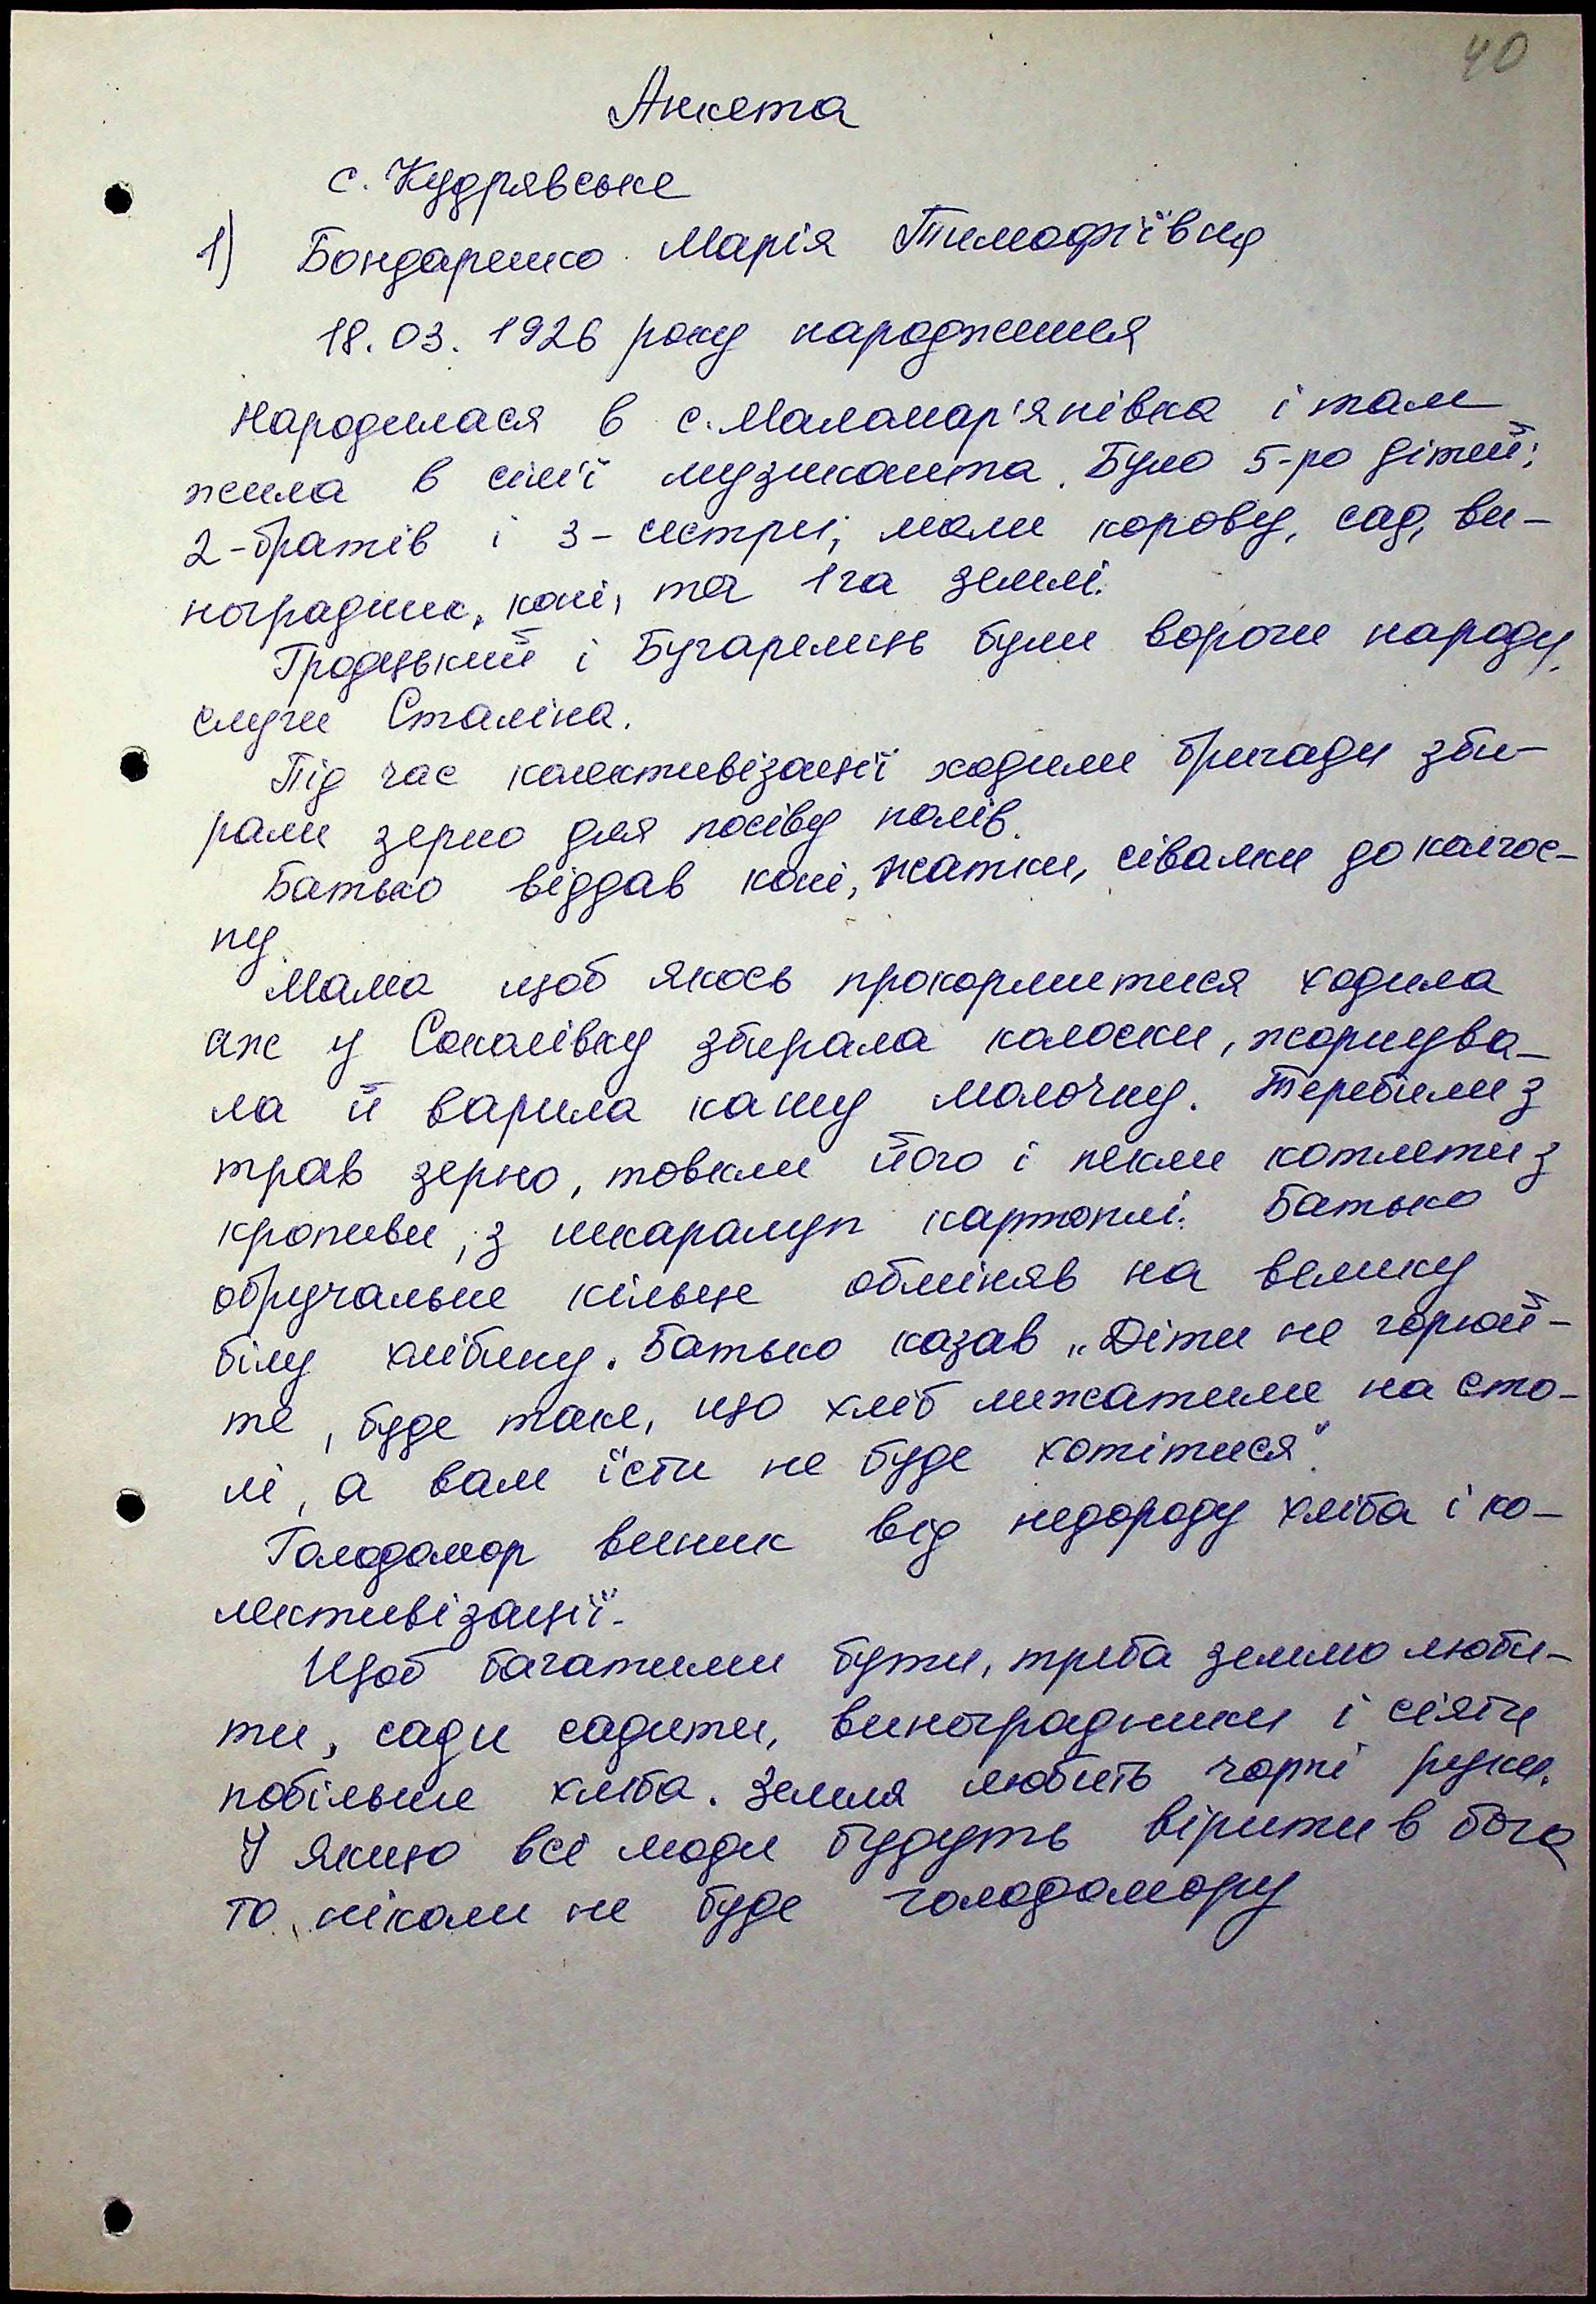 40
Анкета
с. Кудрявське
1) Бондаренко Марія Тимофіївна
18.03.1926 року народження
Народилася в с. Маломар'янівка і там
жила в сім'ї музиканта. Було 5-ро дітей:
2-братів і 3-сестри, мали корову, сад, ви-
ноградник, коні, та 1га землі.
Гродецький і Бугарелись були вороги народу,
слуги Сталіна.
Під час колективізації ходили бригади зби-
рали зерно для посіву полів.
Батько віддав коні, жатки, сівалки до колгос-
пу.
Мама щоб якось прокормитися ходила
аж у Соколівку збирала колоски, жорнува-
ла й варила кашу молочну. Теребили з
трав зерно, товкли його і пекли котлети з
кропиви, з шкаралуп картоплі. Батько
обручальне кільце обміняв на велику
білу хлібину. Батько казав „Діти не горюй-
те, буде таке, що хліб лижатиме на сто-
лі, а вам їсти не буде хотітися".
Голодомор виник від недороду хліба і ко-
лективізації.
Щоб багатими бути, треба землю люби-
ти, сади садити, виноградники і сіяти
побільше хліба. Земля любить чорні руки.
І якщо всі люди будуть вірити в бога
то ніколи не буде голодомору